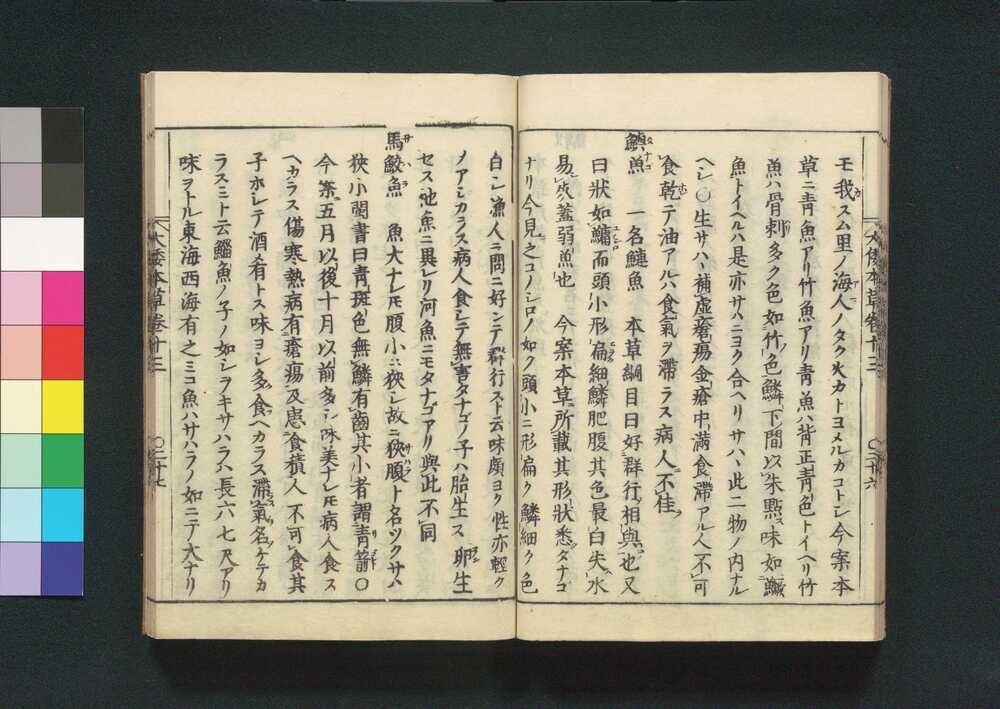 大倭本草巻十三
〇二十六
モ我スム里ノ海人ノタク火カトヨメルカコトシ今案本
草ニ青魚アリ竹魚アリ青魚ハ背正青色トイヘリ竹
魚ハ骨刺多ク色如竹色鱗下間以朱㸃味如鱖
魚トイヘルハ是亦サハニヨク合ヘリサハヽ此二物ノ内ナル
ヘシ〇生サハヽ補虚瘡瘍金瘡中満食滞アル人不可
食乾テ油アルハ食氣ヲ滞ラス病人不佳
鱮魚 一名鰱魚 本草綱目曰好群行相與也又
曰狀如鱅而頭小形扁細鱗肥腹其色最白失水
易死蓋弱魚也 今案本草所載其形狀悉タナコ
ナリ今見之コノシロノ如ク頭小ニ形扁ク鱗細ク色
白シ漁人ニ問ニ好ンテ群行スト云味頗ヨク性亦輕ク
ノアシカラス病人食シテ無害タナゴノ子ハ胎生ス卵生
セス池魚ニ異レリ河魚ニモタナゴアリ與此不同
馬鮫魚 魚大ナレモ腹小ニ狹シ故ニ狹腹ト名ツクサハ
狹小閩書曰青斑色無鱗有齒其小者謂青箭〇
今案五月以後十月以前多シ味美ナレモ病人食ス
ヘカラス傷寒熱病有瘡瘍及患食積人不可食其
子ホシテ酒肴トス味ヨシ多食ヘカラス滞氣名ケテカ
ラスミト云鯔魚ノ子ノ如シヲキサハラハ長六七尺アリ
味ヲトル東海西海有之ミコ魚ハサハラノ如ニテ大ナリ
大倭本草巻十三
〇二十七